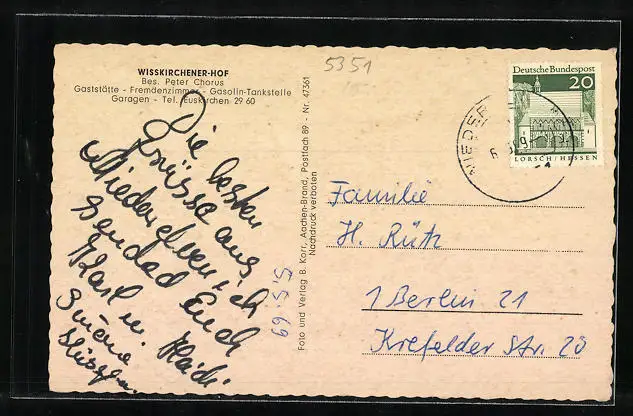 WISSKIRCHENER-HOF
Bes. Peter Chorus
Gaststätte - Fremdenzimmer - Gasolin-Tankstelle
Garagen - Tel. Euskirchen 29 60
Die besten
Grüsse aus
Niederelvenich
sendet Euch
Karl u. Heidi
5.5.69
Foto und Verlag B. Korr, Aachen-Brand, Postfach 89 - Nr. 47361
Nachdruck verboten
5351
Deutsche Bundespost
20
LORSCH/HESSEN
NIEDER
Familie
H. Rütz
1 Berlin 21
Krefelder Str. 20